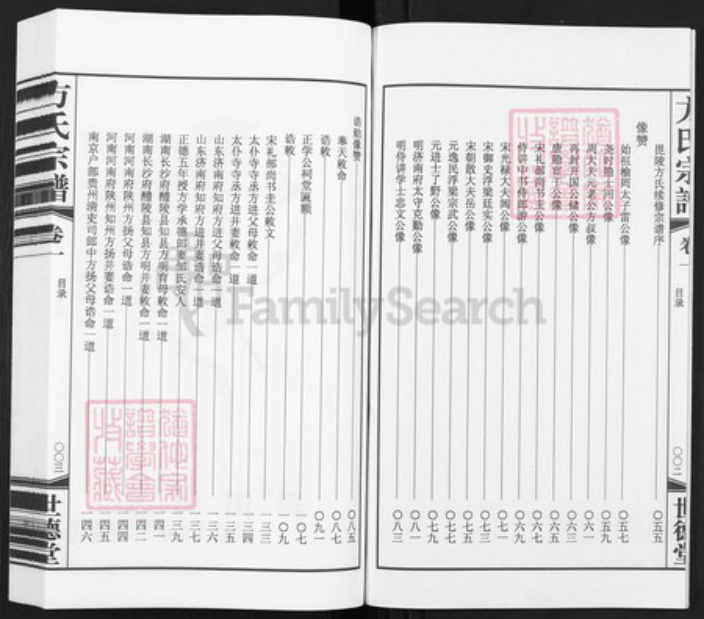 毘陵方氏续修宗谱序 〇五五
像赞
始祖榆罔太子雷公像 〇五七
尧时隐士回公像 〇五九
周大夫元老公方叔像 〇六一
再封开国公储公像 〇六三
唐隐官干公像 〇六五
宋礼部尚书圭公像 〇六七
侍讲中书侍郎游公像 〇六九
宋光禄大夫闻公像 〇七一
宋御史浮梁廷实公像 〇七三
宋朝散大夫岳公像 〇七五
元逸民浮梁宗武公像 〇七七
元进士了野公像 〇七九
明济南府太守克勤公像 〇八一
明侍讲学士忠文公像 〇八三
方氏宗谱 卷一
目录
〇〇二
世德堂
诰勅像赞
奉天敕命 〇八五
诰敕 〇八七
正学公祠堂匾额 〇九一
诰敕 一〇七
宋礼部尚书圭公敕文 一〇九
太仆寺寺丞方进父母敕命一道 一三三
太仆寺寺丞方进并妻敕命一道 一三四
山东济南府知府方进父母诰命一道 一三五
山东济南府知府方进并妻诰命一道 一三六
正德五年授方学承德郎妻邹氏安人 一三七
湖南长沙府醴陵县知县方明育母敕命一道 一三九
湖南长沙府醴陵县知县方明并妻敕命一道 一四一
河南河南府陕州知州方扬父母诰命一道 一四二
河南河南府陕州知州方扬并妻诰命一道 一四四
南京户部贵州清吏司郎中方扬父母诰命一道 一四五
一四六
方氏宗谱 卷一
目录
〇〇三
世德堂
FamilySearch